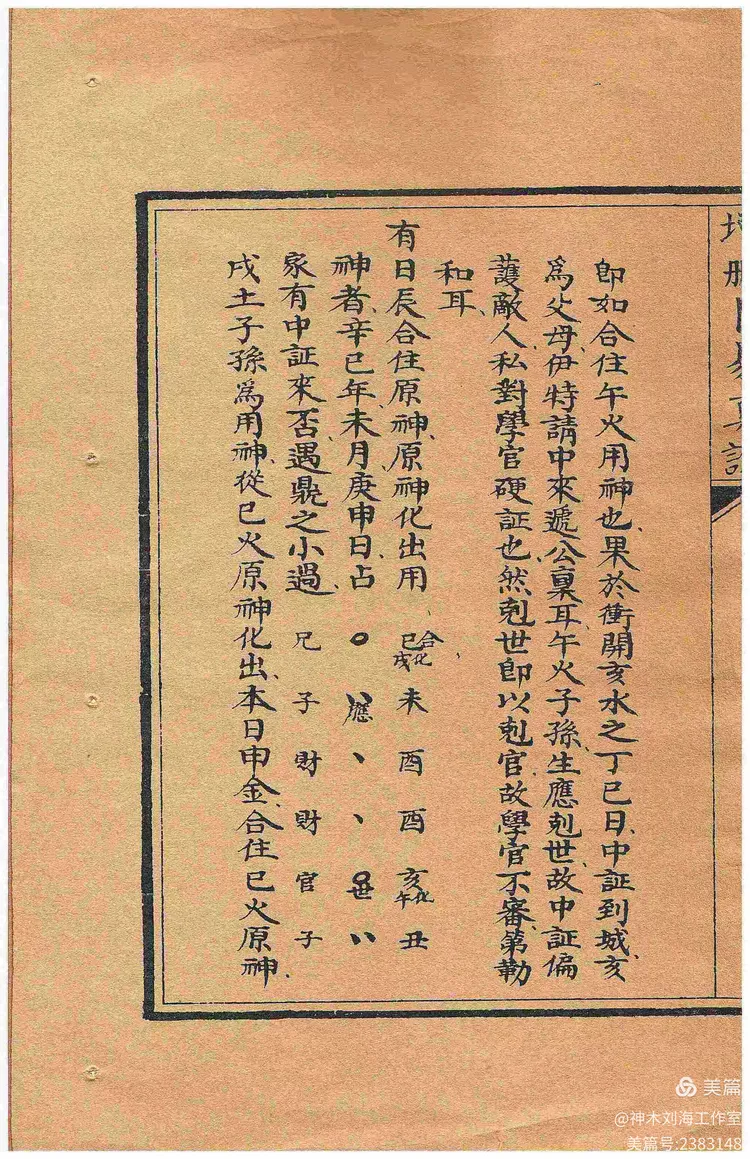 即如合住午火用神也、果於衝開亥水之丁巳日、中証到城、亥
爲父母、伊特請中來遞、公稟耳、午火子孫、生應剋世、故中証偏
護敵人、私對學官硬証也、然剋世即以剋官、故學官不審、第勒
和耳、
有日辰合住原神、原神化出用 巳合化戌 未 酉 酉 亥化午 丑
神者、辛巳年、未月庚申日占、 〇 〃應 丶 丶 〇世 〃
家有中証來否、遇鼎之小過、 兄 子 財 財 官 子
戌土子孫爲用神、從巳火原神化出、本日申金、合住巳火原神、
美篇
@神木刘海工作室
美篇号:2383148